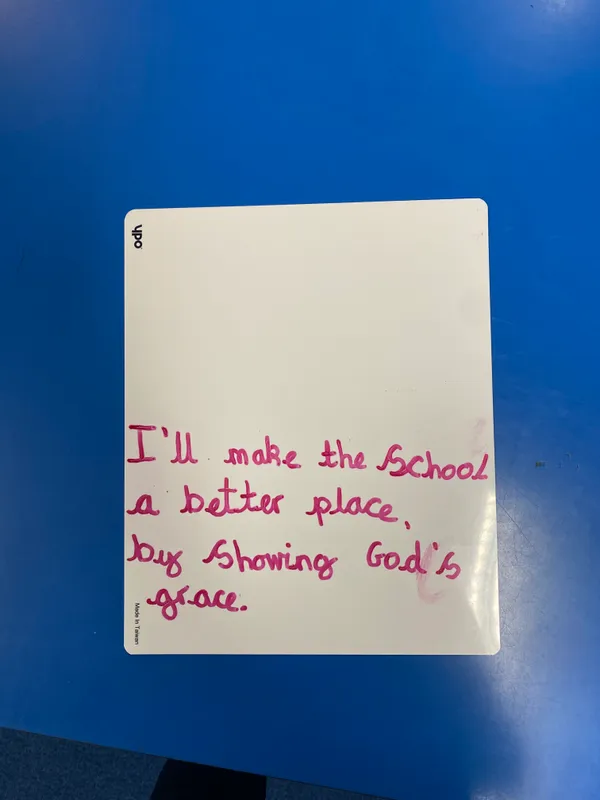 ypo
I'll make the School
a better place,
by Showing God's
grace.
Made In Taiwan